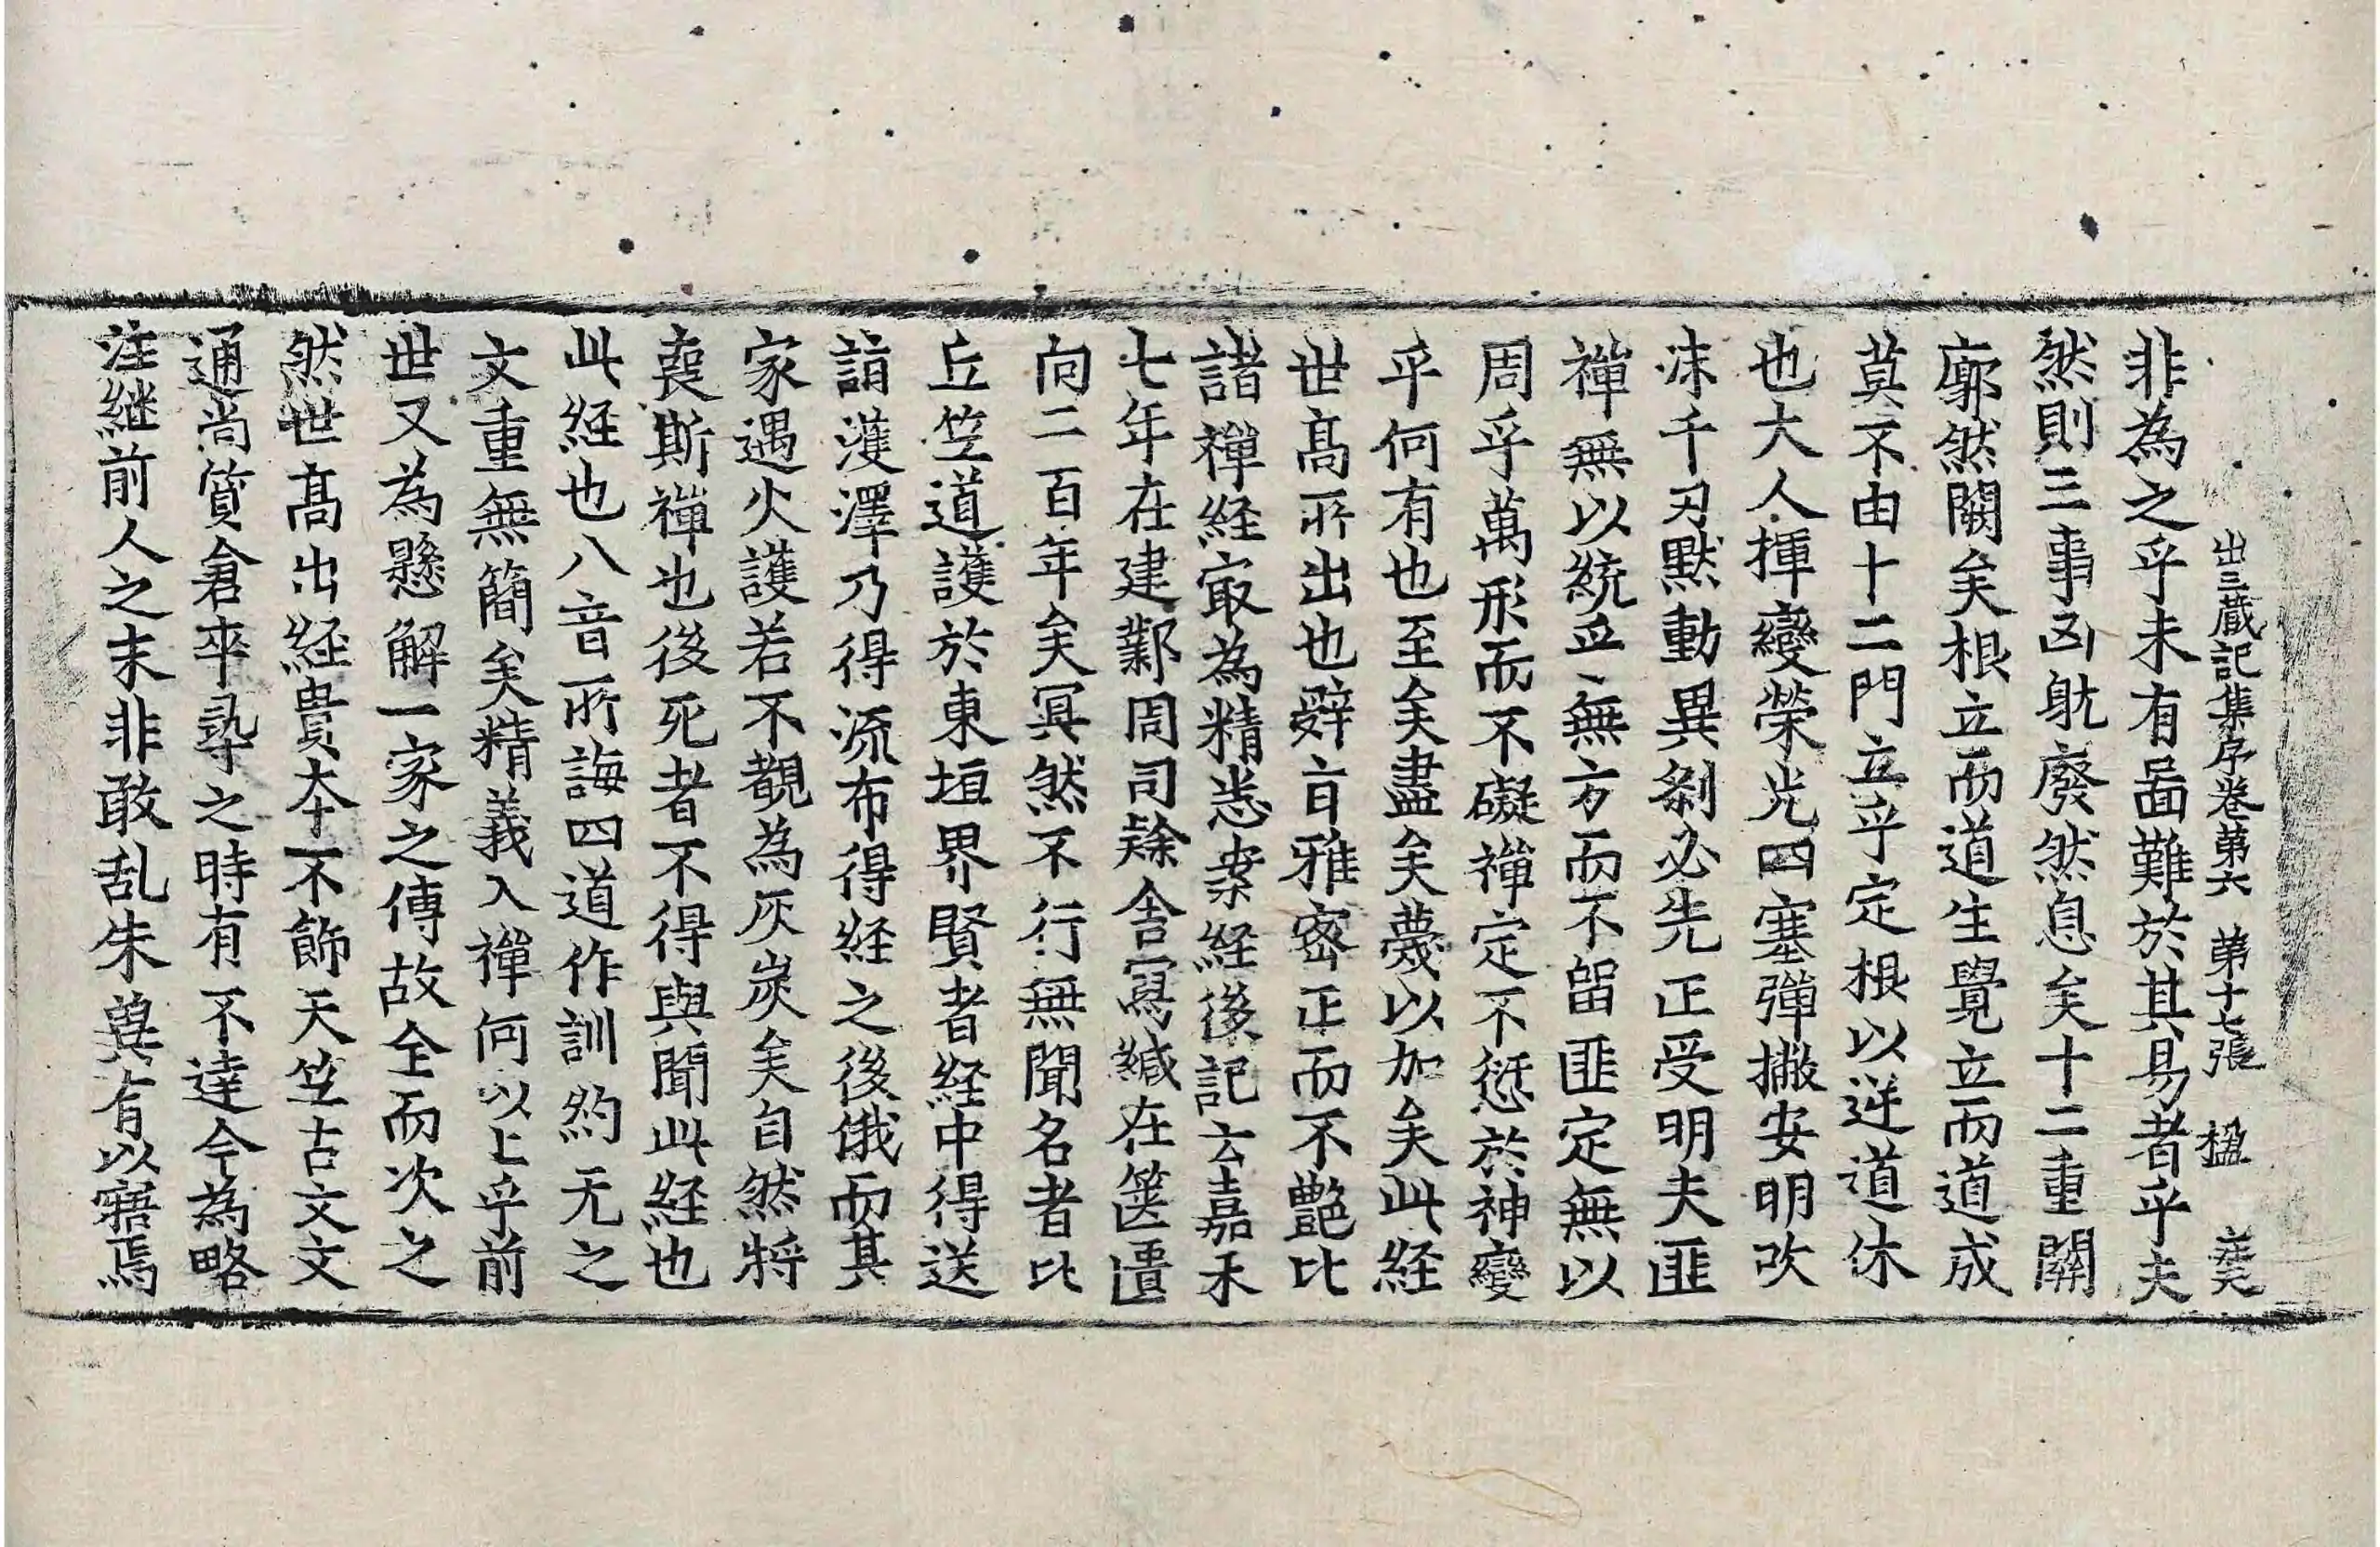 出三藏記集序卷第六　第十七張　楹
非為之乎未有啚難於其易者乎夫
然則三事凶躭廢然息矣十二重關
廓然闢矣根立而道生覺立而道成
莫不由十二門立乎定根以逆道休
也大人揮變榮光四塞彈撇安明改
沫千刃默動異剎必先正受明夫匪
禪無以統乎無方而不留匪定無以
周乎萬形而不礙禪定不愆於神變
乎何有也至矣盡矣蔑以加矣此経
世髙所出也辭旨雅密正而不艷比
諸禪経㝡為精悉案経後記云嘉禾
七年在建鄴周司隸舍寫緘在篋匱
向二百年矣冥然不行無聞名者比
丘笠道護於東垣界賢者経中得送
詣濩澤乃得流布得経之後俄而其
家遇火護若不覩為灰炭矣自然將
喪斯禪也後死者不得與聞此経也
此経也八音所誨四道作訓約无之
文重無簡矣精義入禪何以上乎前
世又為懸解一家之傳故全而次之
然世髙出経貴本不飾天笁古文文
通尚質倉卒尋之時有不達今為略
注継前人之末非敢乱朱兾有以寤焉